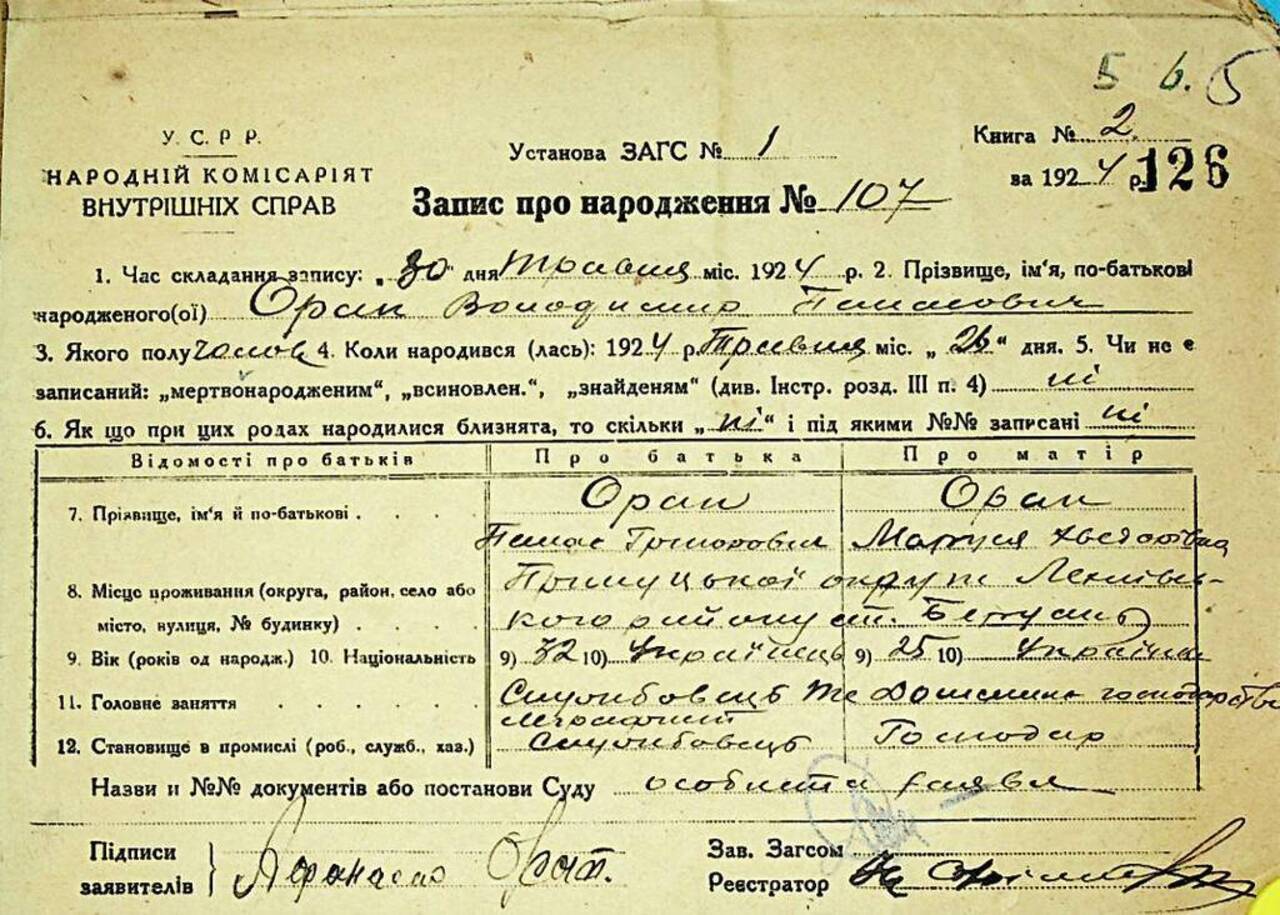 5 6. 5
У. С. Р Р.
НАРОДНІЙ КОМІСАРІЯТ
ВНУТРІШНІХ СПРАВ
Установа ЗАГС № 1
Книга № 2
за 1924 р. 126
Запис про народження № 107
1. Час складання запису: „30" дня Травня міс. 1924 р. 2. Прізвище, ім'я, по-батькові
народженого(ої) Орап Володимир Панасович
3. Якого полу чолов 4. Коли народився (лась): 1924 р. Травня міс. „26" дня. 5. Чи не є
записаний: „мертвонародженим", „всиновлен.", „знайденям" (див. Інстр. розд. III п. 4) ні
6. Як що при цих родах народилися близнята, то скільки „ні" і під якими №№ записані ні
Відомості про батьків Про батька Про матір
7. Прізвище, ім'я й по-батькові Орап Орап
Панас Григорович Мария
8. Місце проживання (округа, район, село або Прилуцької округи
місто, вулиця, № будинку) кого району ст.
9. Вік (років од народж.) 10. Національність 9) 32 10) Українець 9) 25 10) Українка
11. Головне заняття Службовець Домашнє господарство
12. Становище в промислі (роб., служб., хаз.) Службовець Господар
Назви и №№ документів або постанови Суду особиста заява
Підписи
заявителів Афанасий Орап.
Зав. Загсом
Реєстратор